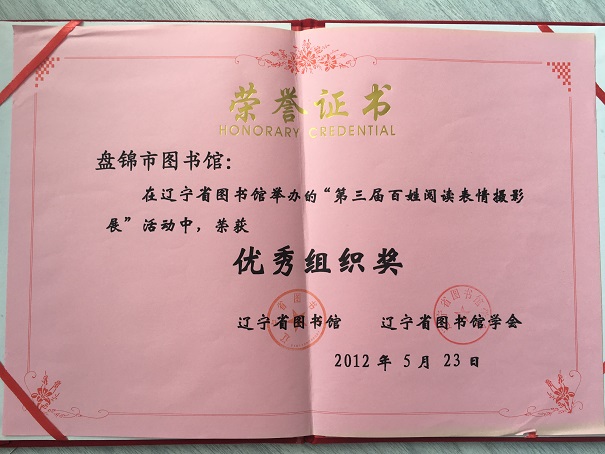 荣誉证书
HONORARY CREDENTIAL
盘锦市图书馆：
在辽宁省图书馆举办的“第三届百姓阅读表情摄影
展”活动中，荣获
优秀组织奖
辽宁省图书馆 辽宁省图书馆学会
2012 年 5 月 23 日